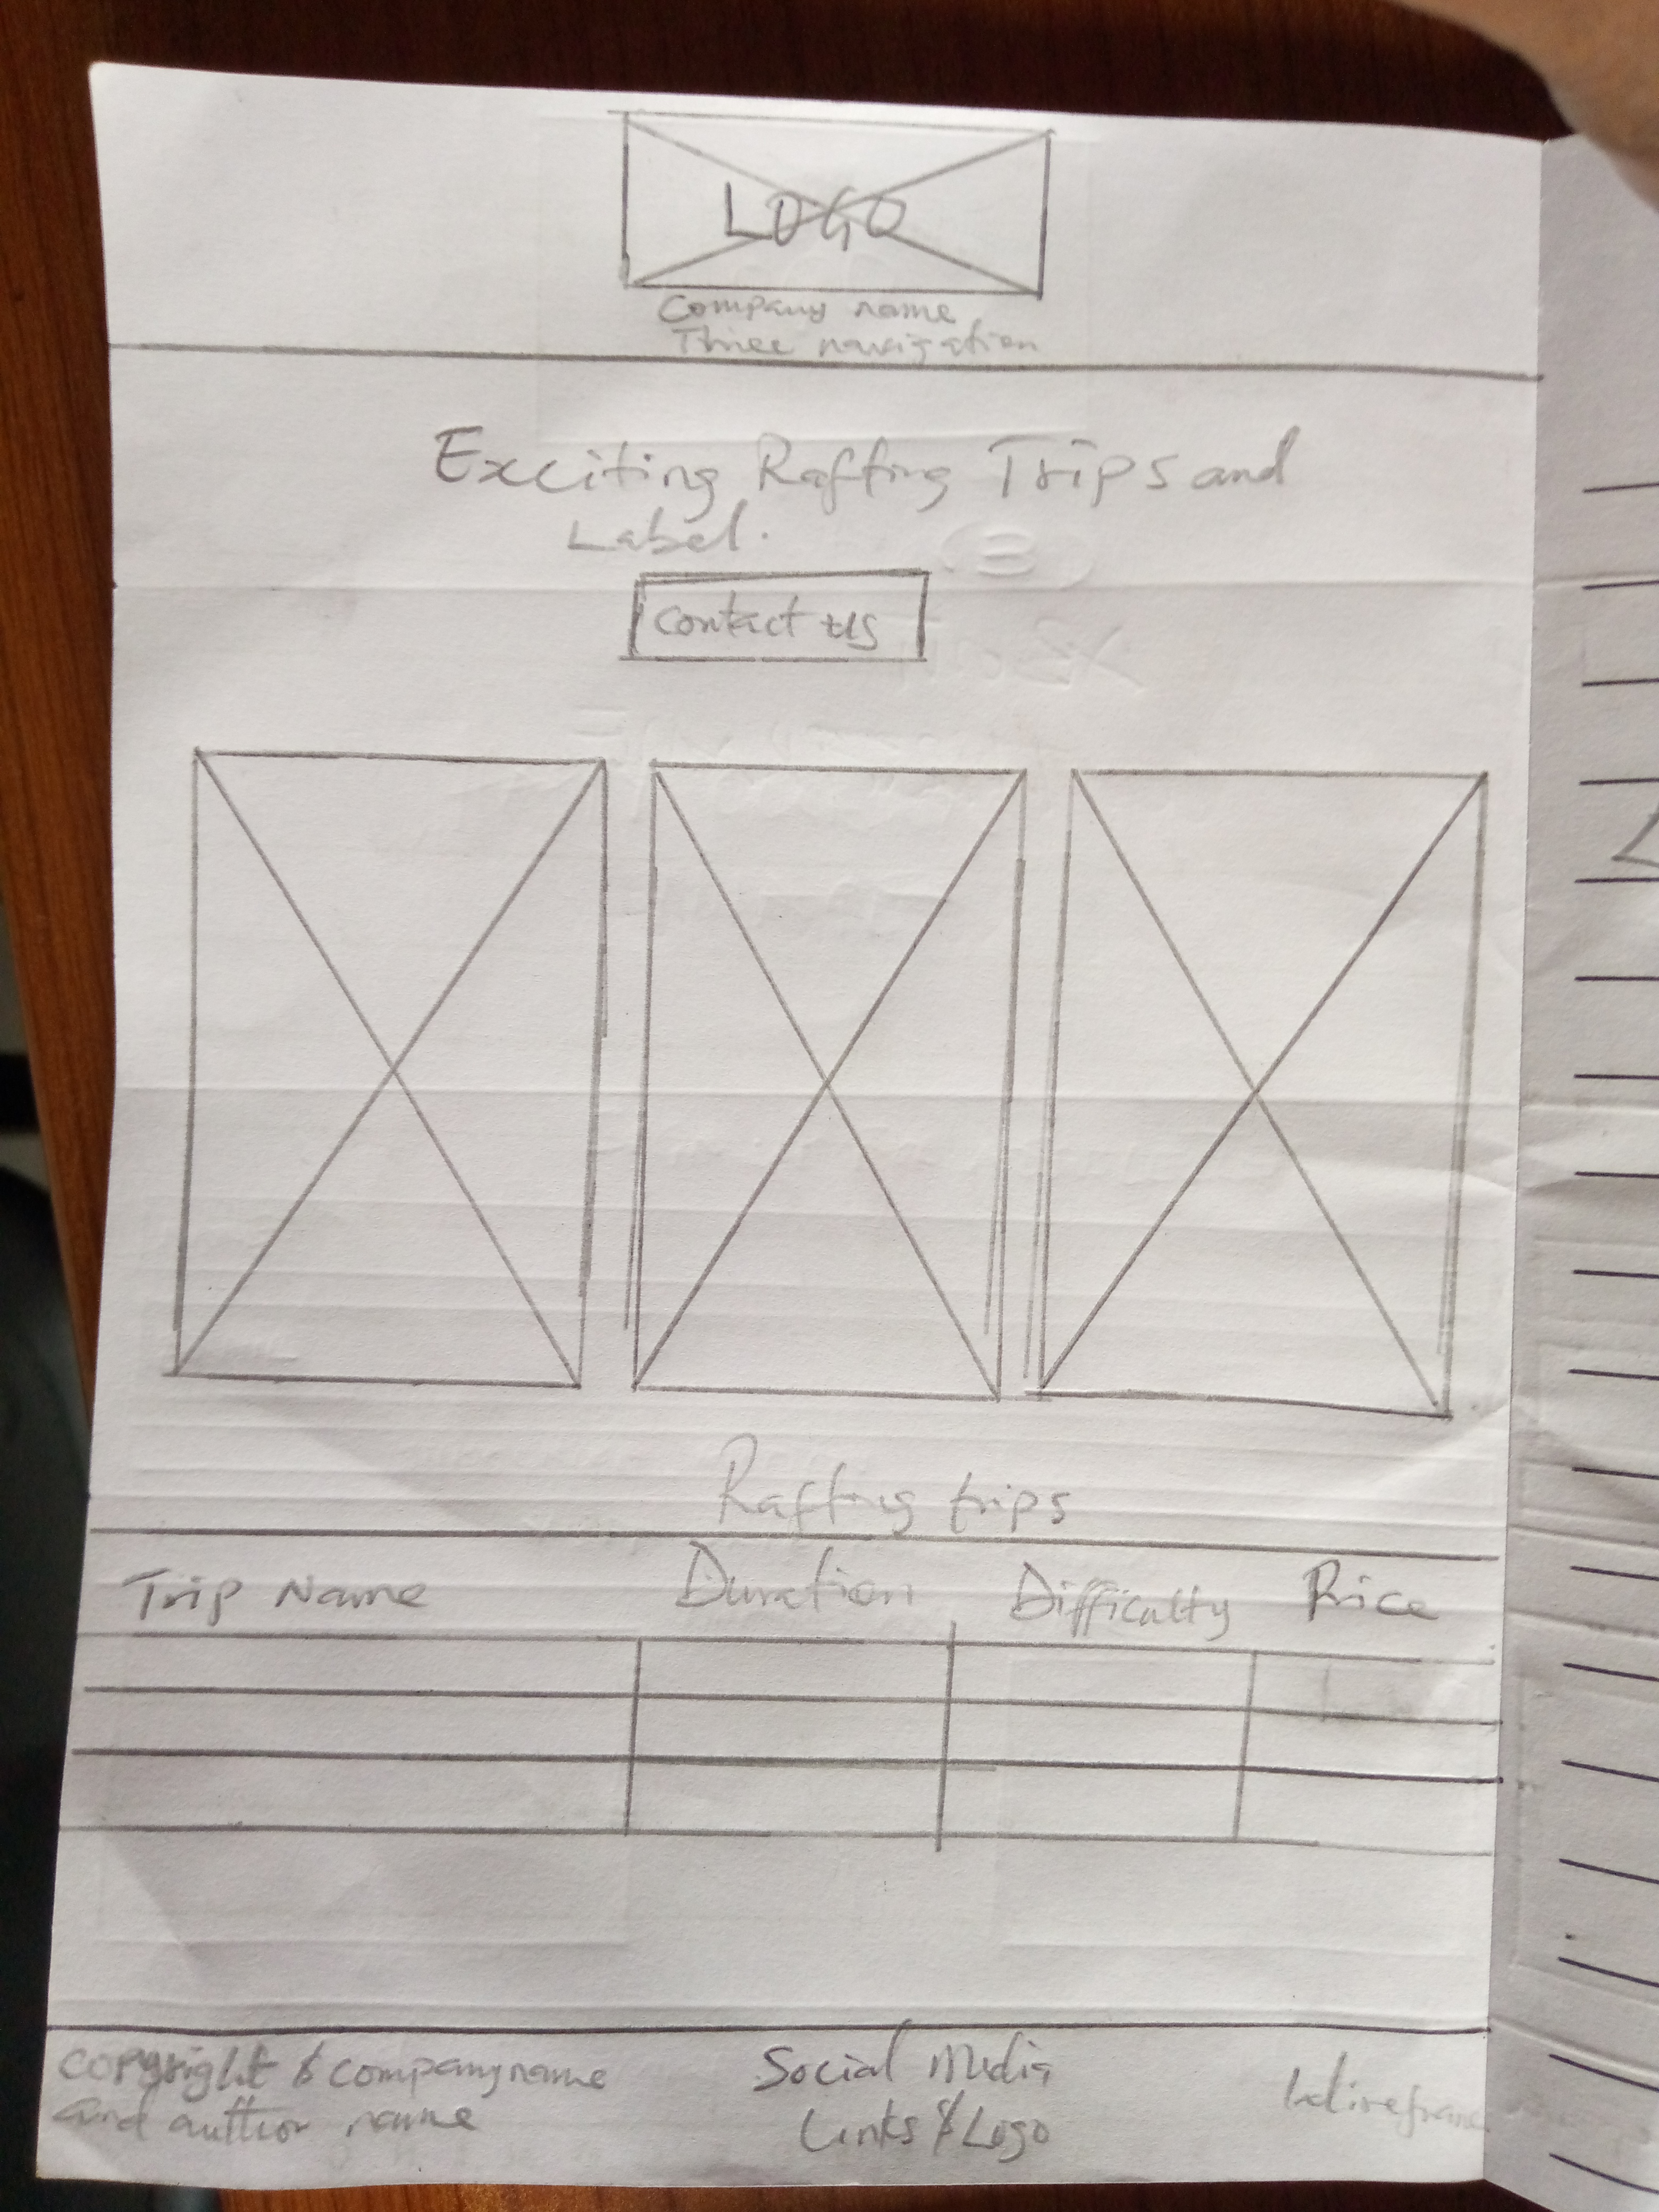 LOGO
Company name
Three navigation
Exciting Rafting Trips and
Label.
Contact us
Rafting trips
Trip Name Duration Difficulty Price
copyright & company name
and author name
Social Media
Links & Logo
Wireframe